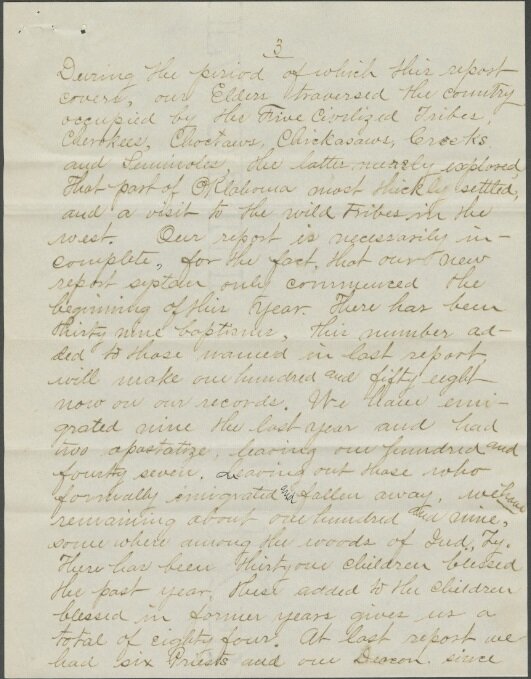 3
During the period of which this report
covers, our Elders traversed the country
occupied by the Five Civilized Tribes,
Cherokees, Choctaws, Chickasaws, Creeks
and Seminoles, the latter, merely explored
that part of Oklahoma most thickly settled,
and a visit to the wild Tribes, in the
west. Our report is necessarily in-
complete, for the fact, that our new
report system only commenced the
beginning of this year. There has been
thirty nine baptisms, this number ad-
ded to those named in last report,
will make one hundred and fifty eight
now on our records. We have emi-
grated nine the last year and had
two apostatize, leaving one hundred and
fourty seven. Leaving out those who
formally emigrated and fallen away, we have
remaining about one hundred and nine,
some where among the woods of Ind, Ty.
There has been thirty one children blessed
the past year, these added to the children
blessed in former years gives us a
total of eighty four. At last report we
had six Priests and one Deacon. since